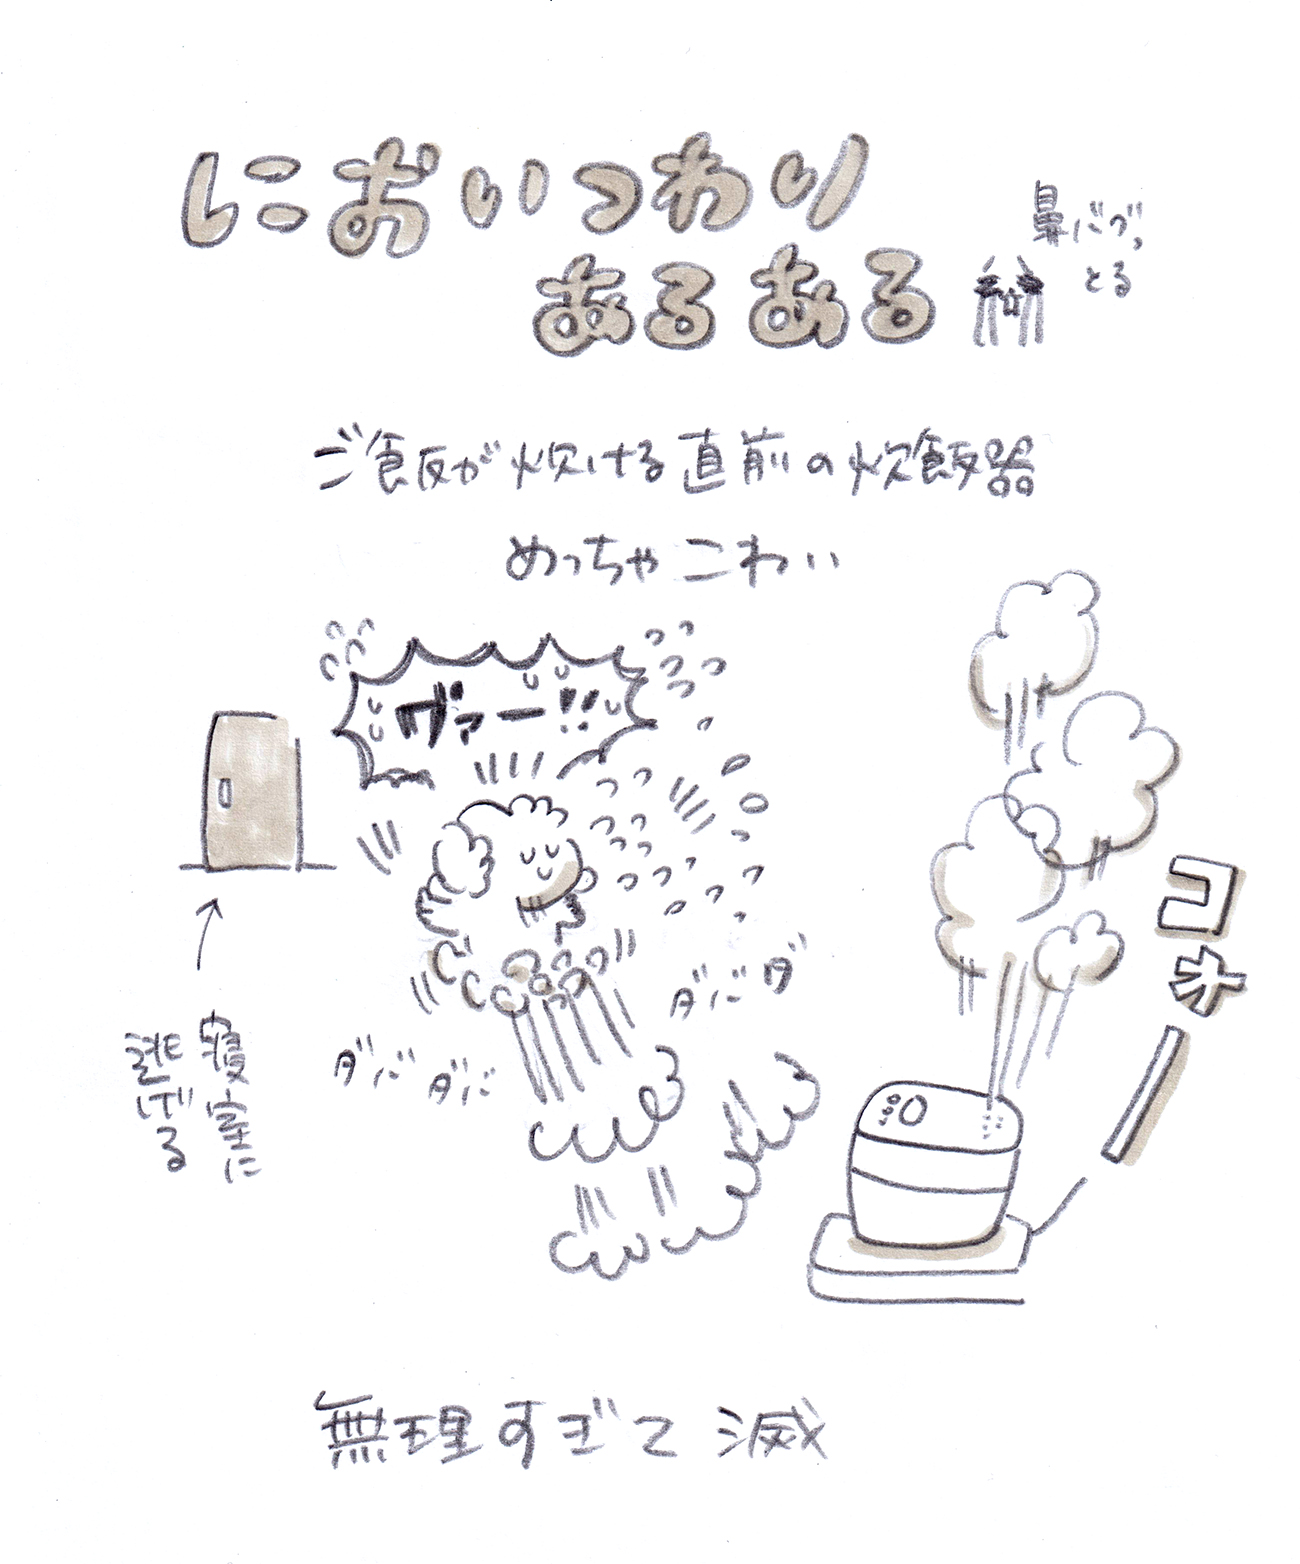 においつわり
あるある
鼻バグっ
とる
ご飯が炊ける直前の炊飯器
めっちゃこわい
ヴァー!!
コォー
ダバダ
ダバダバ
寝室に
逃げる
無理すぎて滅